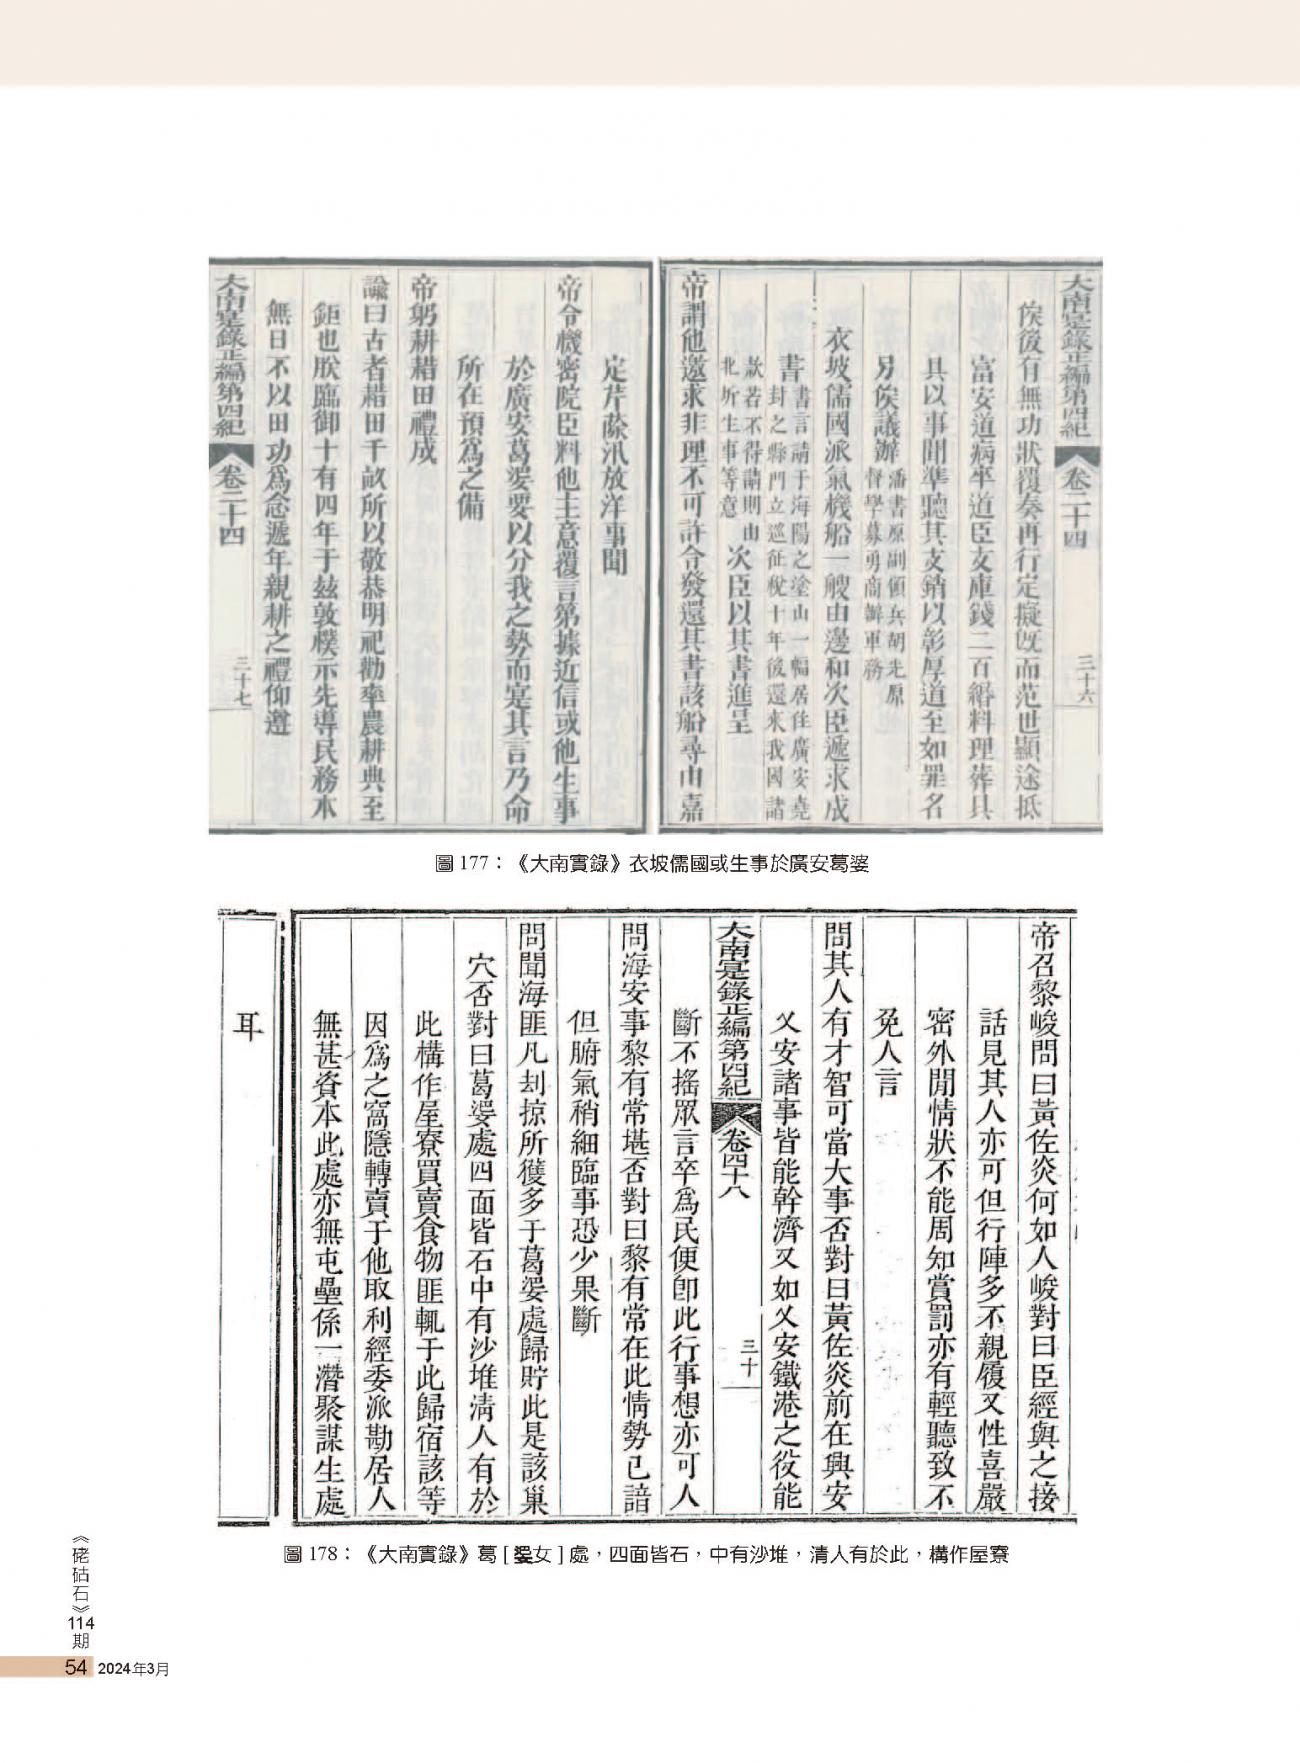 大南寔錄正編第四紀 卷二十四 三十六
俟後有無功狀覆奏再行定擬旣而范世顯途抵
富安道病卒道臣支庫錢二百緡料理葬具
具以事聞準聽其支銷以彰厚道至如罪名
另俟議辦潘書原副領兵胡光原
督學募勇商辦軍務
衣坡儒國派氣機船一艘由邊和次臣遞求成
書書言請于海陽之塗山一幅居住廣安堯
封之縣門立巡征稅十年後還來我國諸
款若不得請則由
北圻生事等意次臣以其書進呈
帝謂他邀求非理不可許令發還其書該船尋由嘉
定芹蒢汛放洋事聞
帝令機密院臣料他主意覆言第據近信或他生事
於廣安葛婆要以分我之勢而寔其言乃命
所在預爲之備
帝躬耕耤田禮成
諭曰古者耤田千畝所以敬恭明祀勸率農耕典至
鉅也朕臨御十有四年于玆敦樸示先導民務本
無日不以田功爲念遞年親耕之禮仰遵
大南寔錄正編第四紀 卷二十四 三十七
圖 177：《大南實錄》衣坡儒國或生事於廣安葛婆
帝召黎峻問曰黃佐炎何如人峻對曰臣經與之接
話見其人亦可但行陣多不親履又性喜嚴
密外閒情狀不能周知賞罰亦有輕聽致不
免人言
問其人有才智可當大事否對曰黃佐炎前在興安
乂安諸事皆能幹濟又如乂安鐵港之役能
大南寔錄正編第四紀 卷四十八 三十
斷不搖眾言卒爲民便卽此行事想亦可人
問海安事黎有常堪否對曰黎有常在此情勢已諳
但腑氣稍細臨事恐少果斷
問聞海匪凡刦掠所獲多于葛婆處歸貯此是該巢
穴否對曰葛婆處四面皆石中有沙堆清人有於
此構作屋寮買賣食物匪輒于此歸宿該等
因爲之窩隱轉賣于他取利經委派勘居人
無甚資本此處亦無屯壘係一潛聚謀生處
耳
圖 178：《大南實錄》葛 [ 㛮女 ] 處，四面皆石，中有沙堆，清人有於此，構作屋寮
《硓𥑮石》114 期
54 2024年3月